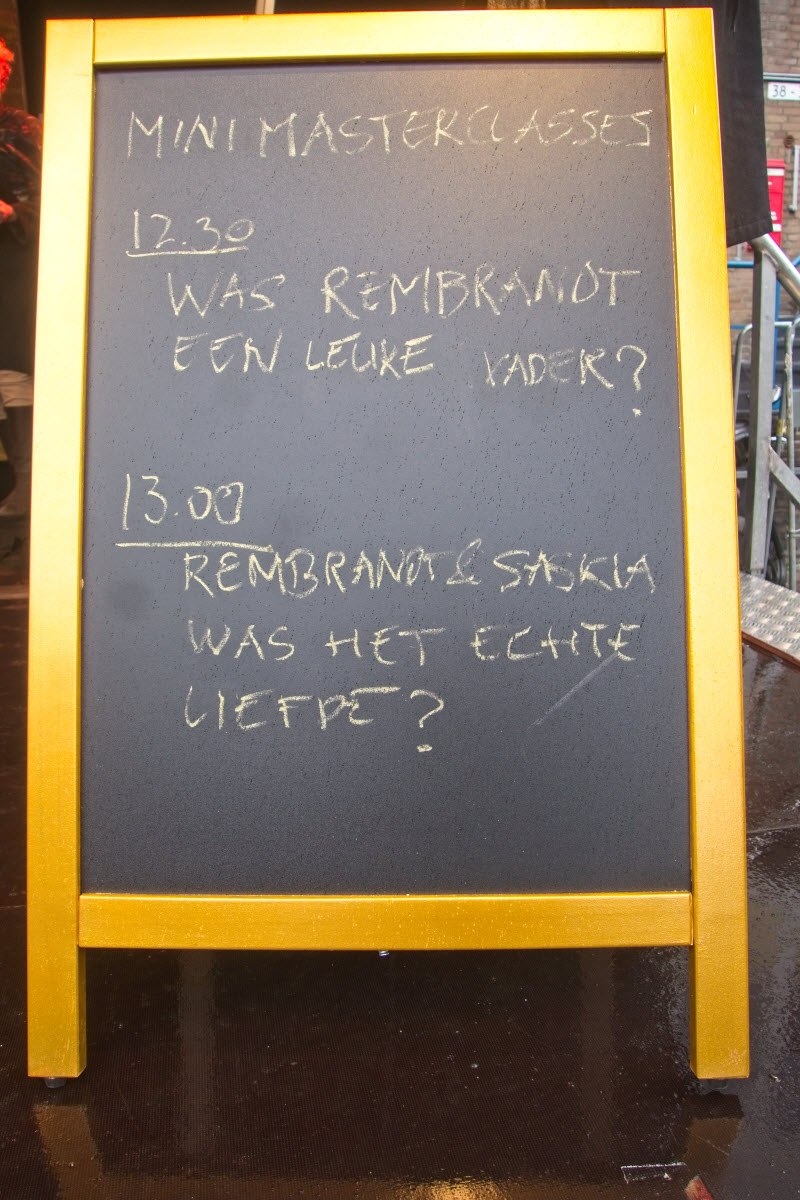 MINI MASTERCLASSES
12.30
WAS REMBRANDT
EEN LEUKE VADER?
13.00
REMBRANDT & SASKIA
WAS HET ECHTE
LIEFDE?
38 -